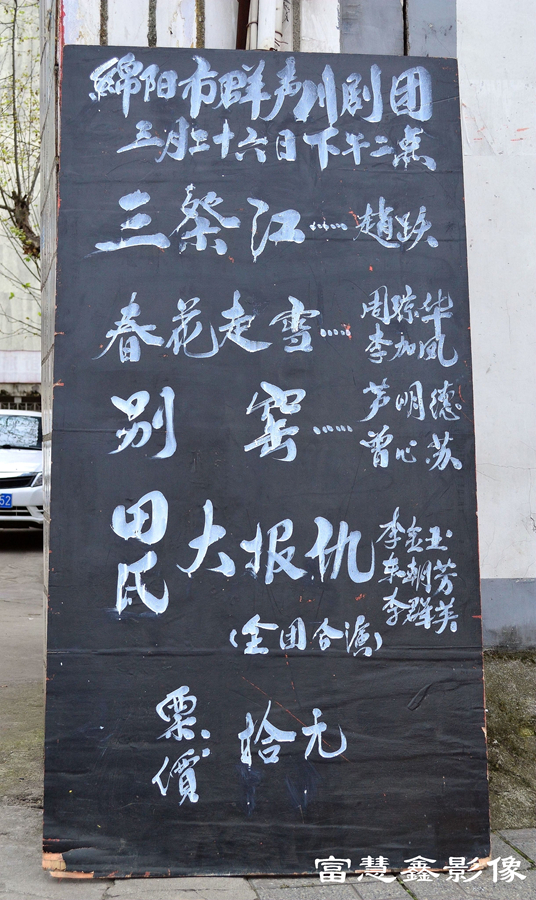 綿阳市群声川剧团
三月二十六日下午二点
三祭江……赵跃
春花走雪……周琼华
李加凤
别窑……芦明德
曾心苏
田氏大报仇 李金玉
朝芳
李群英
(全团合演)
票價 拾元
52
富慧鑫影像